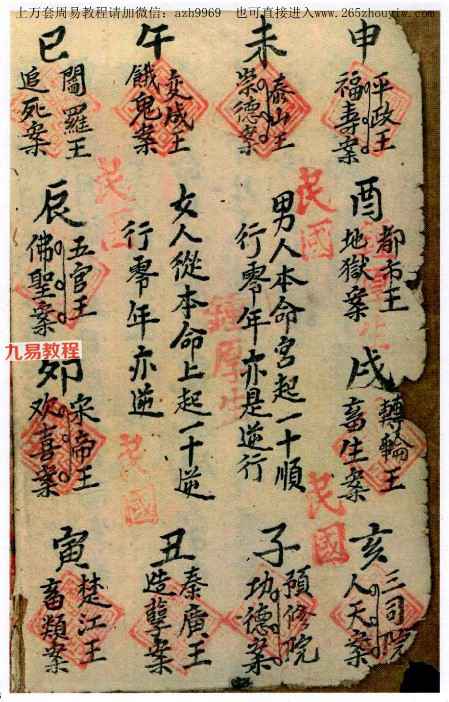 上万套周易教程请加微信：azh9969　也可直接进入www.265zhouyiw.com
申
平政王
福寿案
未
泰山王
崇德案
午
变成王
餓鬼案
巳
閻羅王
追死案
酉
都市王
地獄案
男人本命宮起一十順
行零年亦是逆行
女人從本命上起一十逆
行零年亦逆
辰
五官王
佛聖案
戌
轉輪王
畜生案
卯
宋帝王
欢喜案
亥
三司院
人天案
子
預修院
功德案
丑
秦廣王
造孽案
寅
楚江王
畜類案
民國
民國
民國
民國
九易教程